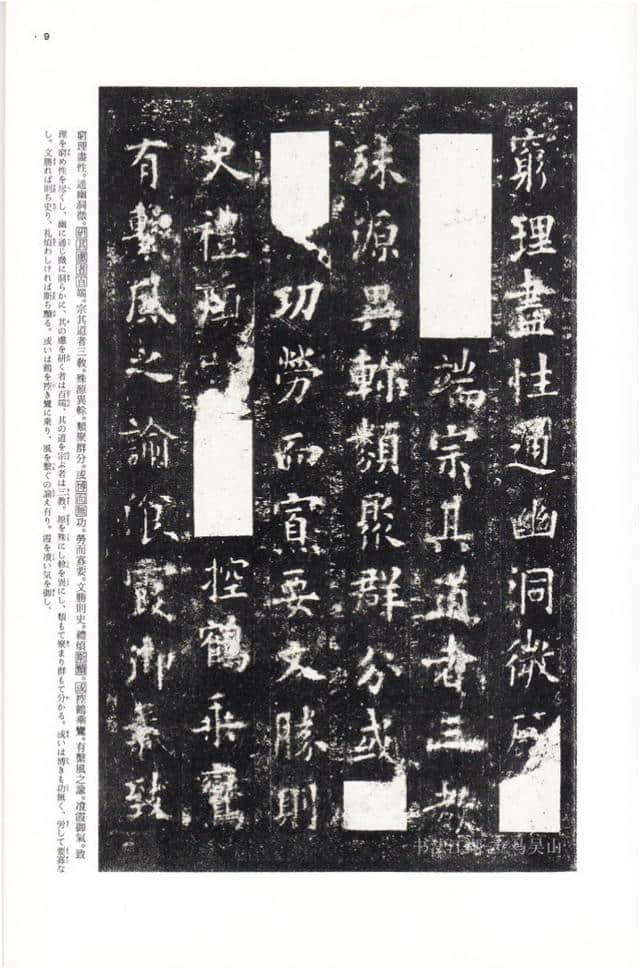 9
窮理盡性通幽洞微
端宗其道者三教
殊源異軫類聚群分或
功勞而寡要文勝則
史禮煩控鶴乘鸞
有繫風之諭飡霞御氣致
窮理盡性。通幽洞微。研其慮者百端。宗其道者三教。殊源異軫。類聚群分。或博而無功。勞而寡要。文勝則史。禮煩斯黷。或控鶴乘鸞。有繫風之諭。飡霞御氣。致
理を窮め性を尽くし、幽に通じ微に洞らかに、其の慮を研く者は百端、其の道を宗ぶ者は三教。源を殊にし軫を異にし、類もて聚まり群もて分かる。或いは博きも功無く、労して要寡な
し。文勝れば則ち史り、礼煩わしければ斯ち黷る。或いは鶴を控き鸞に乗り、風を繫ぐの諭え有り。霞を飡い気を御し、